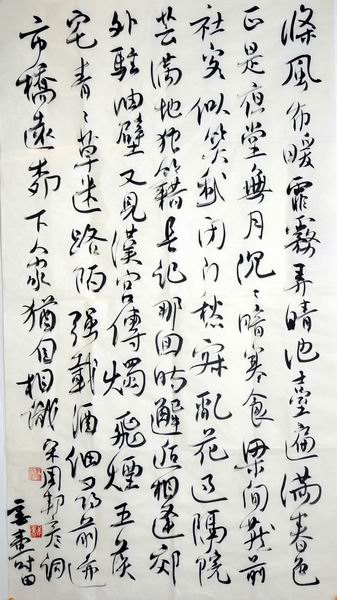 條風布暖霏霧弄晴池臺遍滿春色
正是夜堂無月沉々暗寒食梁間燕前
社客似笑我閉门愁寂亂花过隔院
芸滿地狼籍長記那回时邂逅相逢郊
外駐油壁又見漢宮傳燭飛煙五侯
宅青々草迷路陌强載酒细尋前迹
市橋遠柳下人家猶自相識 宋周邦彦詞